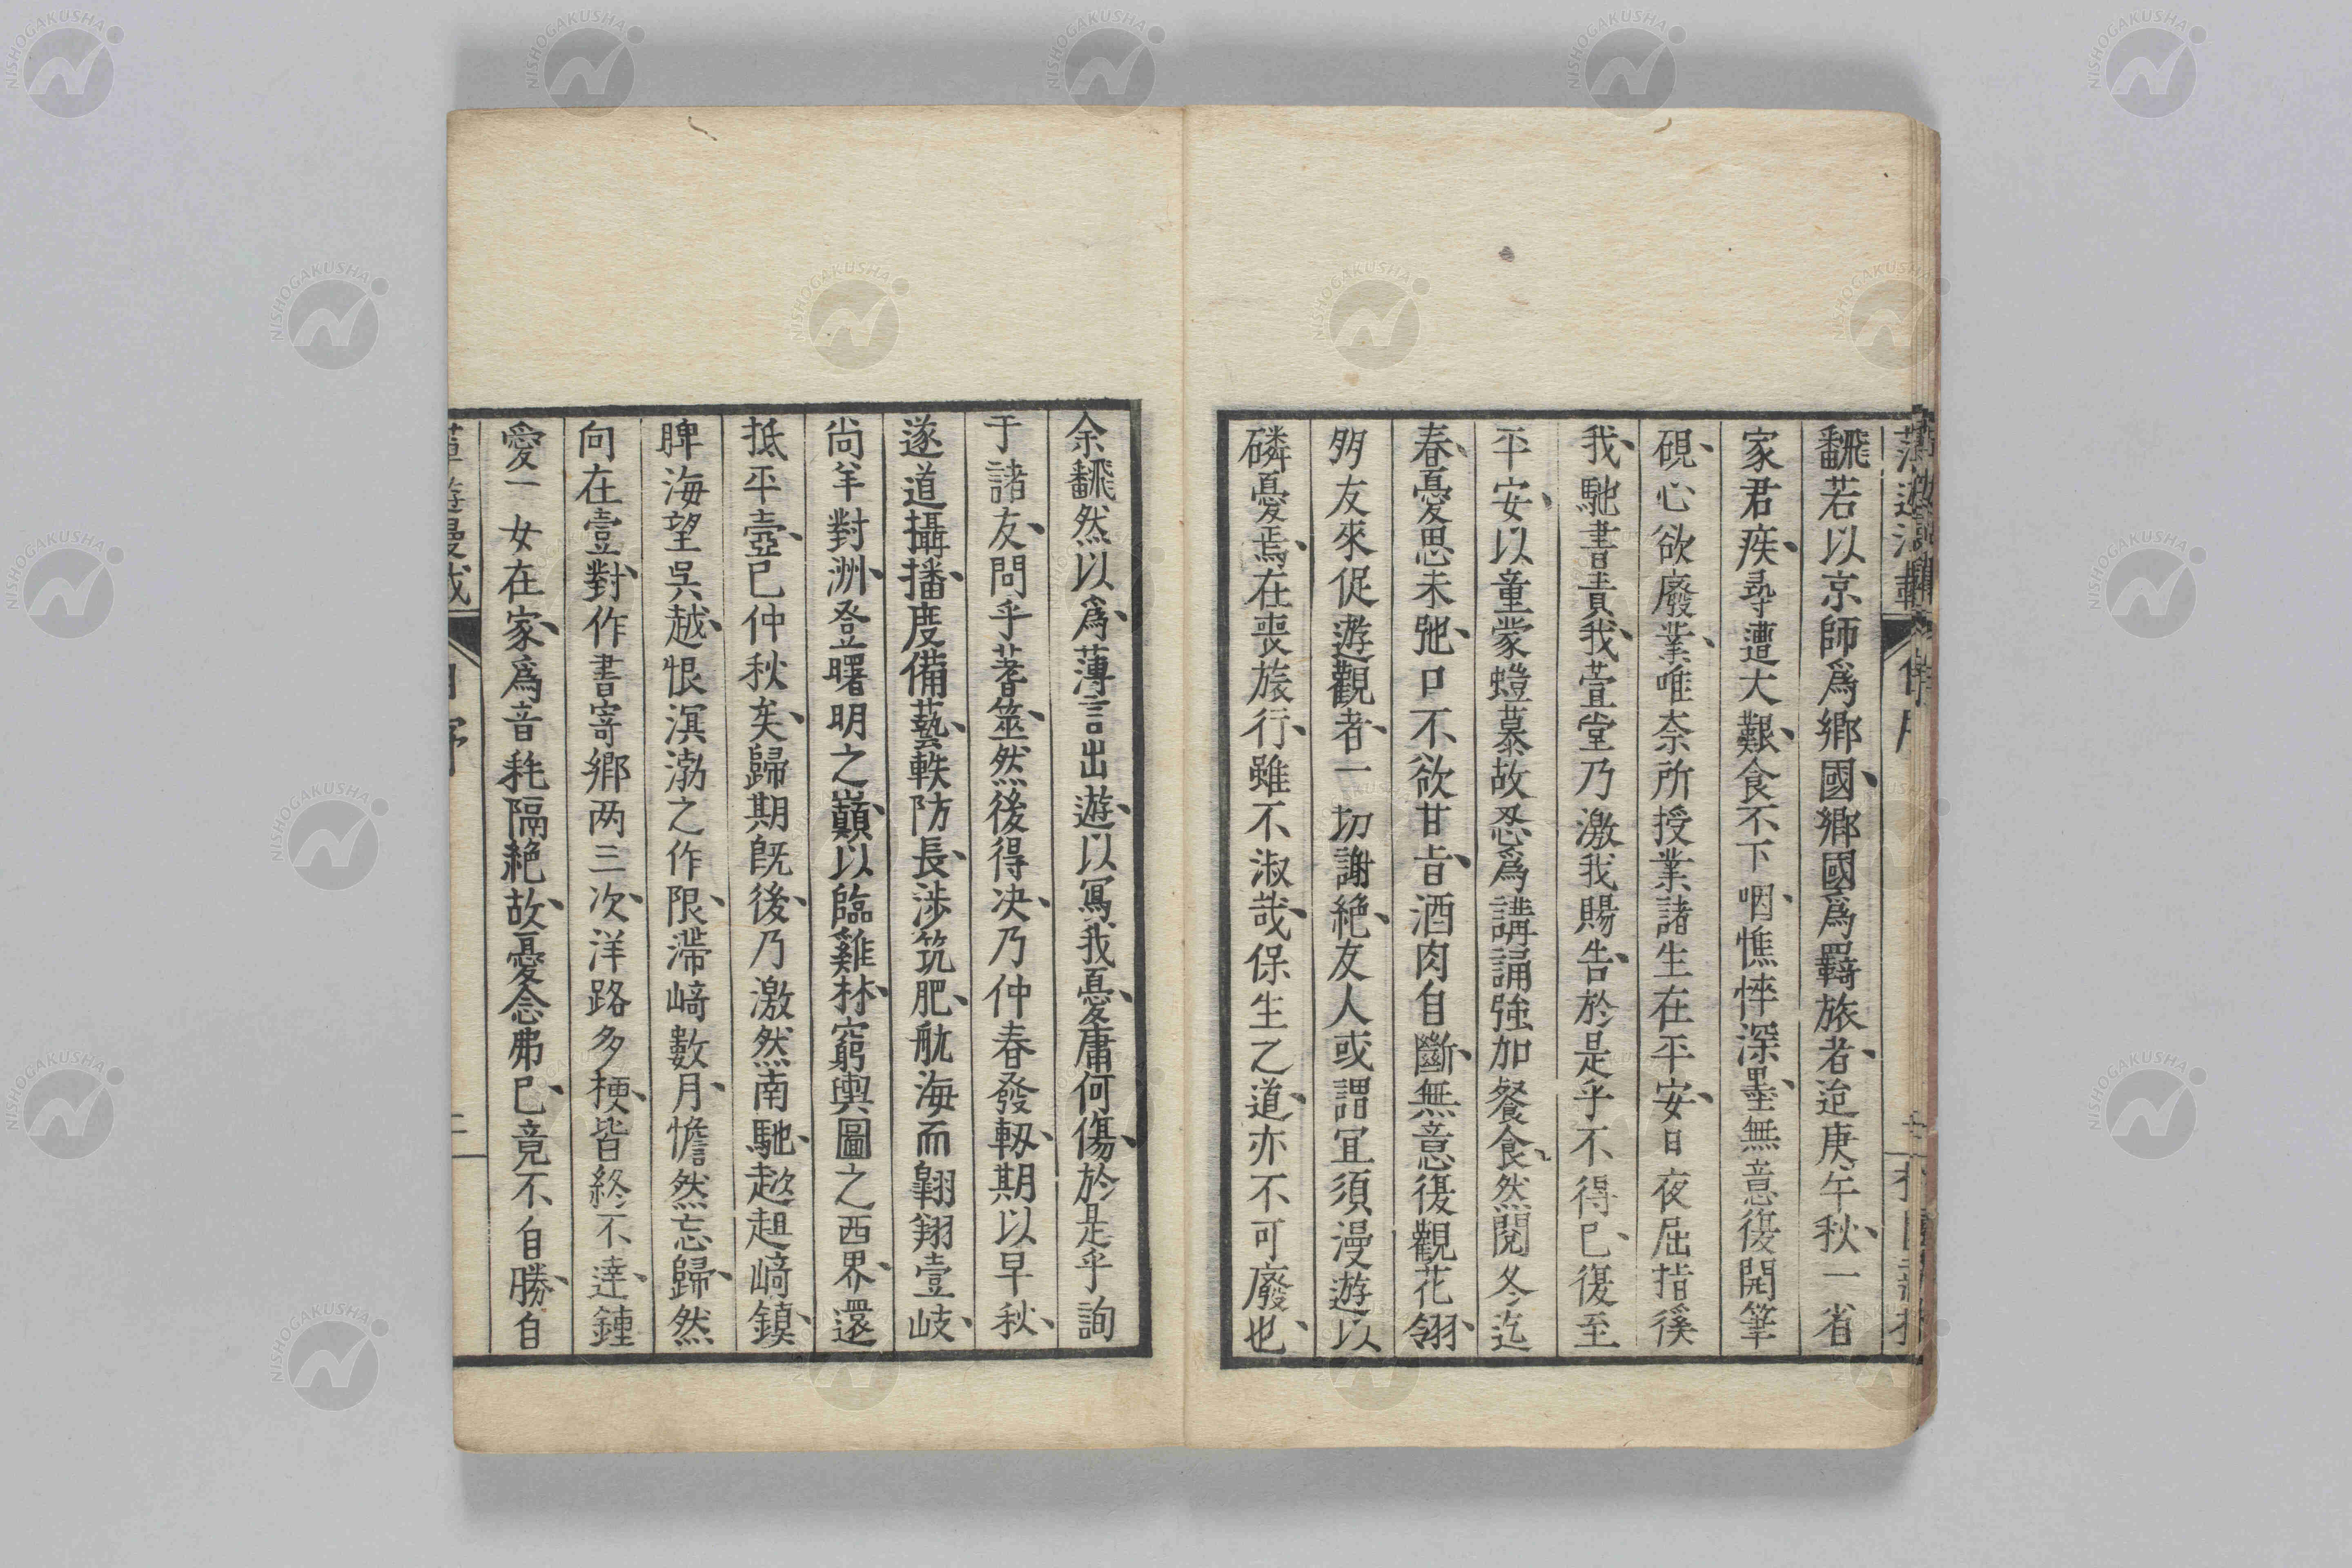 飜若以京師爲鄉國、鄉國爲羇旅者、迨庚午秋、一省
家君疾、尋遭大艱、食不下咽、憔悴深墨、無意復開筆
硯、心欲廢業、唯奈所授業諸生在平安、日夜屈指徯
我、馳書責我、萱堂乃激我賜告、於是乎不得已、復至
平安、以童蒙螘慕故忍爲講誦強加餐食、然閱冬迄
春、憂思未弛、口不欲甘旨、酒肉自斷、無意復觀花翎、
朋友來促遊觀者、一切謝絶、友人或謂宜須漫遊以
磷憂焉、在喪旅行、雖不淑哉、保生之道、亦不可廢也、
余飜然以爲、薄言出遊、以寫我憂、庸何傷、於是乎詢
于諸友、問乎蓍筮、然後得決、乃仲春發軔、期以早秋、
遂道攝播、度備藝、軼防長、涉筑肥、航海而翺翔壹岐、
尚羊對洲、登曙明之巓、以臨雞林、窮輿圖之西界、還
抵平壺、已仲秋矣、歸期既後、乃激然南馳、趑趄﨑鎮、
睥海望吳越、恨溟渤之作限、滯﨑數月、憺然忘歸、然
向在壹對、作書寄鄉两三次、洋路多梗、皆終不達、鍾
愛一女在家、爲音耗隔絶故、憂念弗已、竟不自勝、自
NISHOGAKUSHA